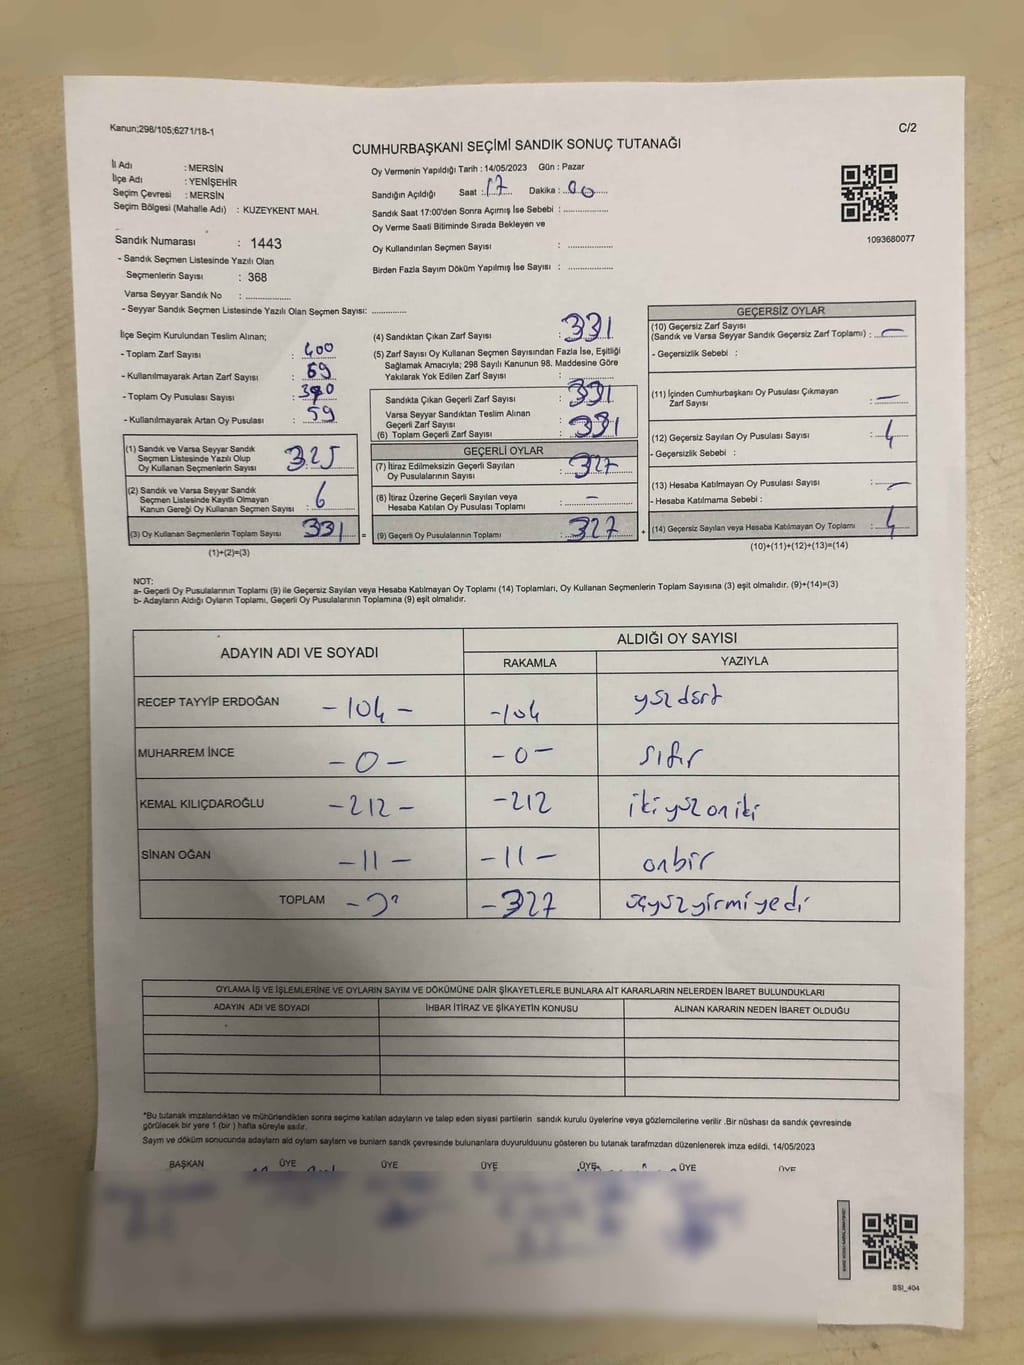 Kanun;298/105;6271/18-1
C/2
CUMHURBAŞKANI SEÇİMİ SANDIK SONUÇ TUTANAĞI
İl Adı : MERSİN
İlçe Adı : YENİŞEHİR
Seçim Çevresi : MERSİN
Seçim Bölgesi (Mahalle Adı) : KUZEYKENT MAH.
Oy Vermenin Yapıldığı Tarih : 14/05/2023 Gün : Pazar
Sandığın Açıldığı Saat : 17 Dakika : 00
Sandık Saat 17:00'den Sonra Açımış İse Sebebi :
Oy Verme Saati Bitiminde Sırada Bekleyen ve
Oy Kullandırılan Seçmen Sayısı :
Birden Fazla Sayım Döküm Yapılmış İse Sayısı :
1093680077
Sandık Numarası : 1443
- Sandık Seçmen Listesinde Yazılı Olan
Seçmenlerin Sayısı : 368
Varsa Seyyar Sandık No :
- Seyyar Sandık Seçmen Listesinde Yazılı Olan Seçmen Sayısı:
İlçe Seçim Kurulundan Teslim Alınan;
- Toplam Zarf Sayısı : 400
- Kullanılmayarak Artan Zarf Sayısı : 69
- Toplam Oy Pusulası Sayısı : 390
- Kullanılmayarak Artan Oy Pusulası : 59
(1) Sandık ve Varsa Seyyar Sandık
Seçmen Listesinde Yazılı Olup
Oy Kullanan Seçmenlerin Sayısı : 325
(2) Sandık ve Varsa Seyyar Sandık
Seçmen Listesinde Kayıtlı Olmayan
Kanun Gereği Oy Kullanan Seçmen Sayısı : 6
(3) Oy Kullanan Seçmenlerin Toplam Sayısı : 331 =
(1)+(2)=(3)
(4) Sandıktan Çıkan Zarf Sayısı : 331
(5) Zarf Sayısı Oy Kullanan Seçmen Sayısından Fazla İse, Eşitliği
Sağlamak Amacıyla; 298 Sayılı Kanunun 98. Maddesine Göre
Yakılarak Yok Edilen Zarf Sayısı :
Sandıkta Çıkan Geçerli Zarf Sayısı : 331
Varsa Seyyar Sandıktan Teslim Alınan
Geçerli Zarf Sayısı :
(6) Toplam Geçerli Zarf Sayısı : 331
GEÇERLİ OYLAR
(7) İtiraz Edilmeksizin Geçerli Sayılan
Oy Pusulalarının Sayısı : 327
(8) İtiraz Üzerine Geçerli Sayılan veya
Hesaba Katılan Oy Pusulası Toplamı : -
(9) Geçerli Oy Pusulalarının Toplamı : 327 +
GEÇERSİZ OYLAR
(10) Geçersiz Zarf Sayısı
(Sandık ve Varsa Seyyar Sandık Geçersiz Zarf Toplamı) : -
- Geçersizlik Sebebi :
(11) İçinden Cumhurbaşkanı Oy Pusulası Çıkmayan
Zarf Sayısı : -
(12) Geçersiz Sayılan Oy Pusulası Sayısı : 4
- Geçersizlik Sebebi :
(13) Hesaba Katılmayan Oy Pusulası Sayısı : -
- Hesaba Katılmama Sebebi :
(14) Geçersiz Sayılan veya Hesaba Katılmayan Oy Toplamı : 4
(10)+(11)+(12)+(13)=(14)
NOT:
a- Geçerli Oy Pusulalarının Toplamı (9) ile Geçersiz Sayılan veya Hesaba Katılmayan Oy Toplamı (14) Toplamları, Oy Kullanan Seçmenlerin Toplam Sayısına (3) eşit olmalıdır. (9)+(14)=(3)
b- Adayların Aldığı Oyların Toplamı, Geçerli Oy Pusulalarının Toplamına (9) eşit olmalıdır.
ADAYIN ADI VE SOYADI
ALDIĞI OY SAYISI
RAKAMLA YAZIYLA
RECEP TAYYİP ERDOĞAN -104- -104 yüz dört
MUHARREM İNCE -0- -0- sıfır
KEMAL KILIÇDAROĞLU -212- -212 iki yüz on iki
SİNAN OĞAN -11- -11- onbir
TOPLAM -327 üçyüz yirmi yedi
OYLAMA İŞ VE İŞLEMLERİNE VE OYLARIN SAYIM VE DÖKÜMÜNE DAİR ŞİKAYETLERLE BUNLARA AİT KARARLARIN NELERDEN İBARET BULUNDUKLARI
ADAYIN ADI VE SOYADI İHBAR İTİRAZ VE ŞİKAYETİN KONUSU ALINAN KARARIN NEDEN İBARET OLDUĞU
*Bu tutanak imzalandıktan ve mühürlendikten sonra seçime katılan adayların ve talep eden siyasi partilerin sandık kurulu üyelerine veya gözlemcilerine verilir .Bir nüshası da sandık çevresinde
görülecek bir yere 1 (bir ) hafta süreyle asılır.
Sayım ve döküm sonucunda adayların ald oyların sayların ve bunların sandk çevresinde bulunanlara duyurulduunu gösteren bu tutanak tarafmzdan düzenlenerek imza edildi. 14/05/2023
BAŞKAN ÜYE ÜYE ÜYE ÜYE ÜYE ÜYE
BSI_404